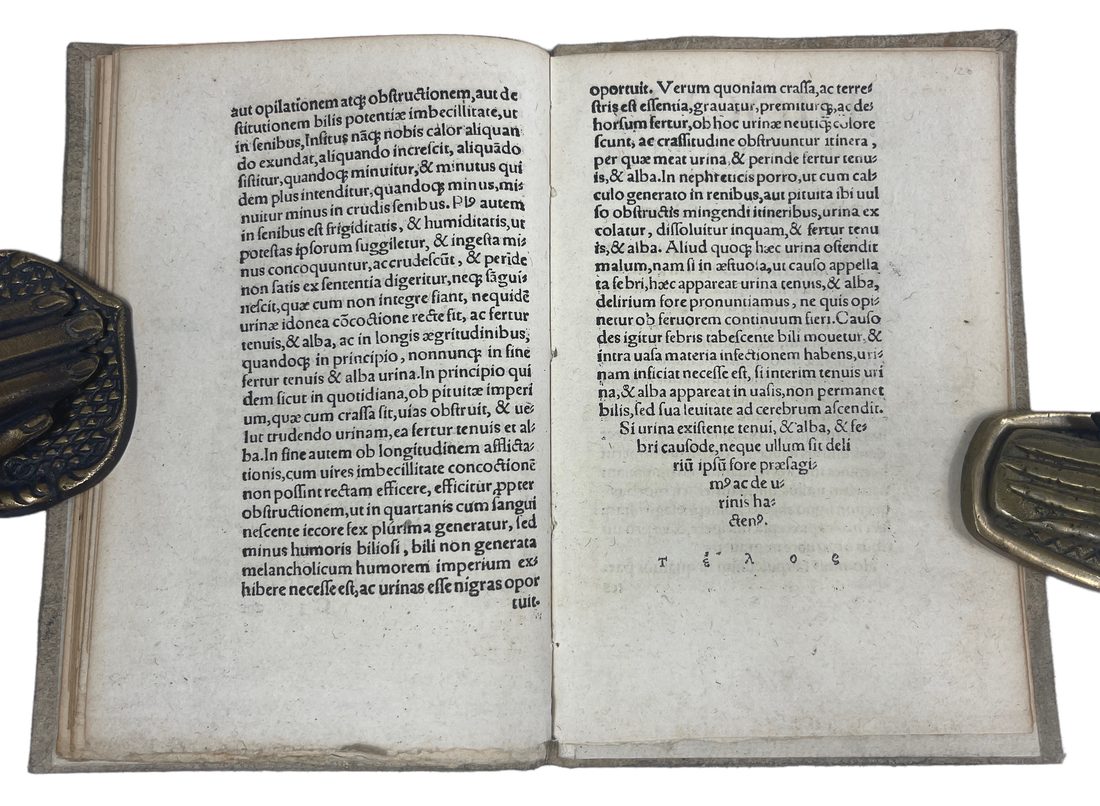 aut opilationem atq; obstructionem, aut de
stitutionem bilis potentiæ imbecillitate, ut
in senibus, Insitus nãq; nobis calor aliquan
do exundat, aliquando increscit, aliquãdo
sistitur, quandoq; minuitur, & minutus qui
dem plus intenditur, quandoq; minus, mi-
nuitur minus in crudis senibus. Plꝰ autem
in senibus est frigiditatis, & humiditatis, ut
potestas ipsorum suggiletur, & ingesta mi-
nus concoquuntur, ac crudescũt, & perĩde
non satis ex sententia digeritur, neq; sãguis
nescit, quæ cum non integre fiant, nequidẽ
urinæ idonea cõcoctione recte fit, ac fertur
tenuis, & alba, ac in longis ægritudinibus,
quandoq; in principio, nonnunq̃ in fine
fertur tenuis & alba urina. In principio qui
dem sicut in quotidiana, ob pituitæ imperi
um, quæ cum crassa sit, uias obstruit, & ue-
lut trudendo urinam, ea fertur tenuis et al-
ba. In fine autem ob longitudinem afflicta-
tionis, cum uires imbecillitate concoctionẽ
non possint rectam efficere, efficitur ꝓpter
obstructionem, ut in quartanis cum sangui
nescente iecore fex plurima generatur, sed
minus humoris biliosi, bili non generata
melancholicum humorem imperium ex-
hibere necesse est, ac urinas esse nigras opor
tuit.
120
oportuit. Verum quoniam crassa, ac terre-
stris est essentia, grauatur, premiturq;, ac de-
horsum fertur, ob hoc urinæ neutiq̃ colore
scunt, ac crassitudine obstruuntur itinera,
per quæ meat urina, & perinde fertur tenu-
is, & alba. In nephreticis porro, ut cum cal-
culo generato in renibus, aut pituita ibi uul
so obstructis mingendi itineribus, urina ex
colatur, dissoluitur inquam, & fertur tenu
is, & alba. Aliud quoq; hæc urina ostendit
malum, nam si in æstuosa, ut causo appella
ta febri, hæc appareat urina tenuis, & alba,
delirium fore pronuntiamus, ne quis opi-
netur ob feruorem continuum fieri. Causo
des igitur febris tabescente bili mouetur, &
intra uasa materia infectionem habens, uri-
nam inficiat necesse est, si interim tenuis uri
na, & alba appareat in uasis, non permanet
bilis, sed sua leuitate ad cerebrum ascendit.
Si urina existente tenui, & alba, & fe-
bri causode, neque ullum sit deli
riũ ipsũ fore præsagi-
mꝰ ac de u-
rinis ha-
ctenꝰ.
τ έ λ ο ς